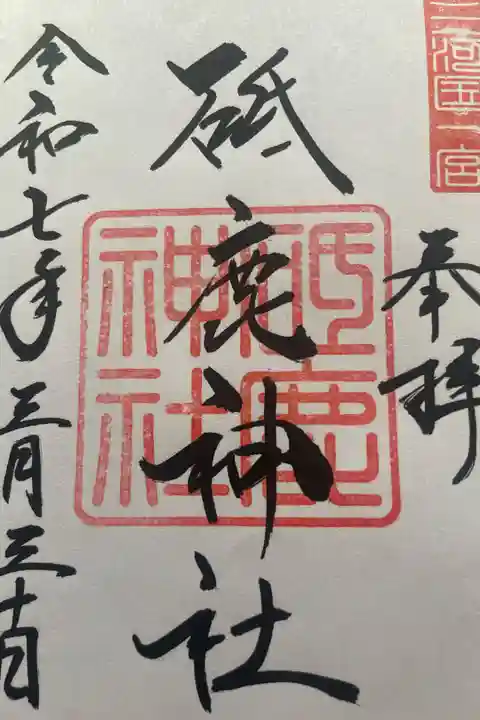 三河国一宮
奉拝
砥鹿神社
砥鹿神社
令和七年三月三十日